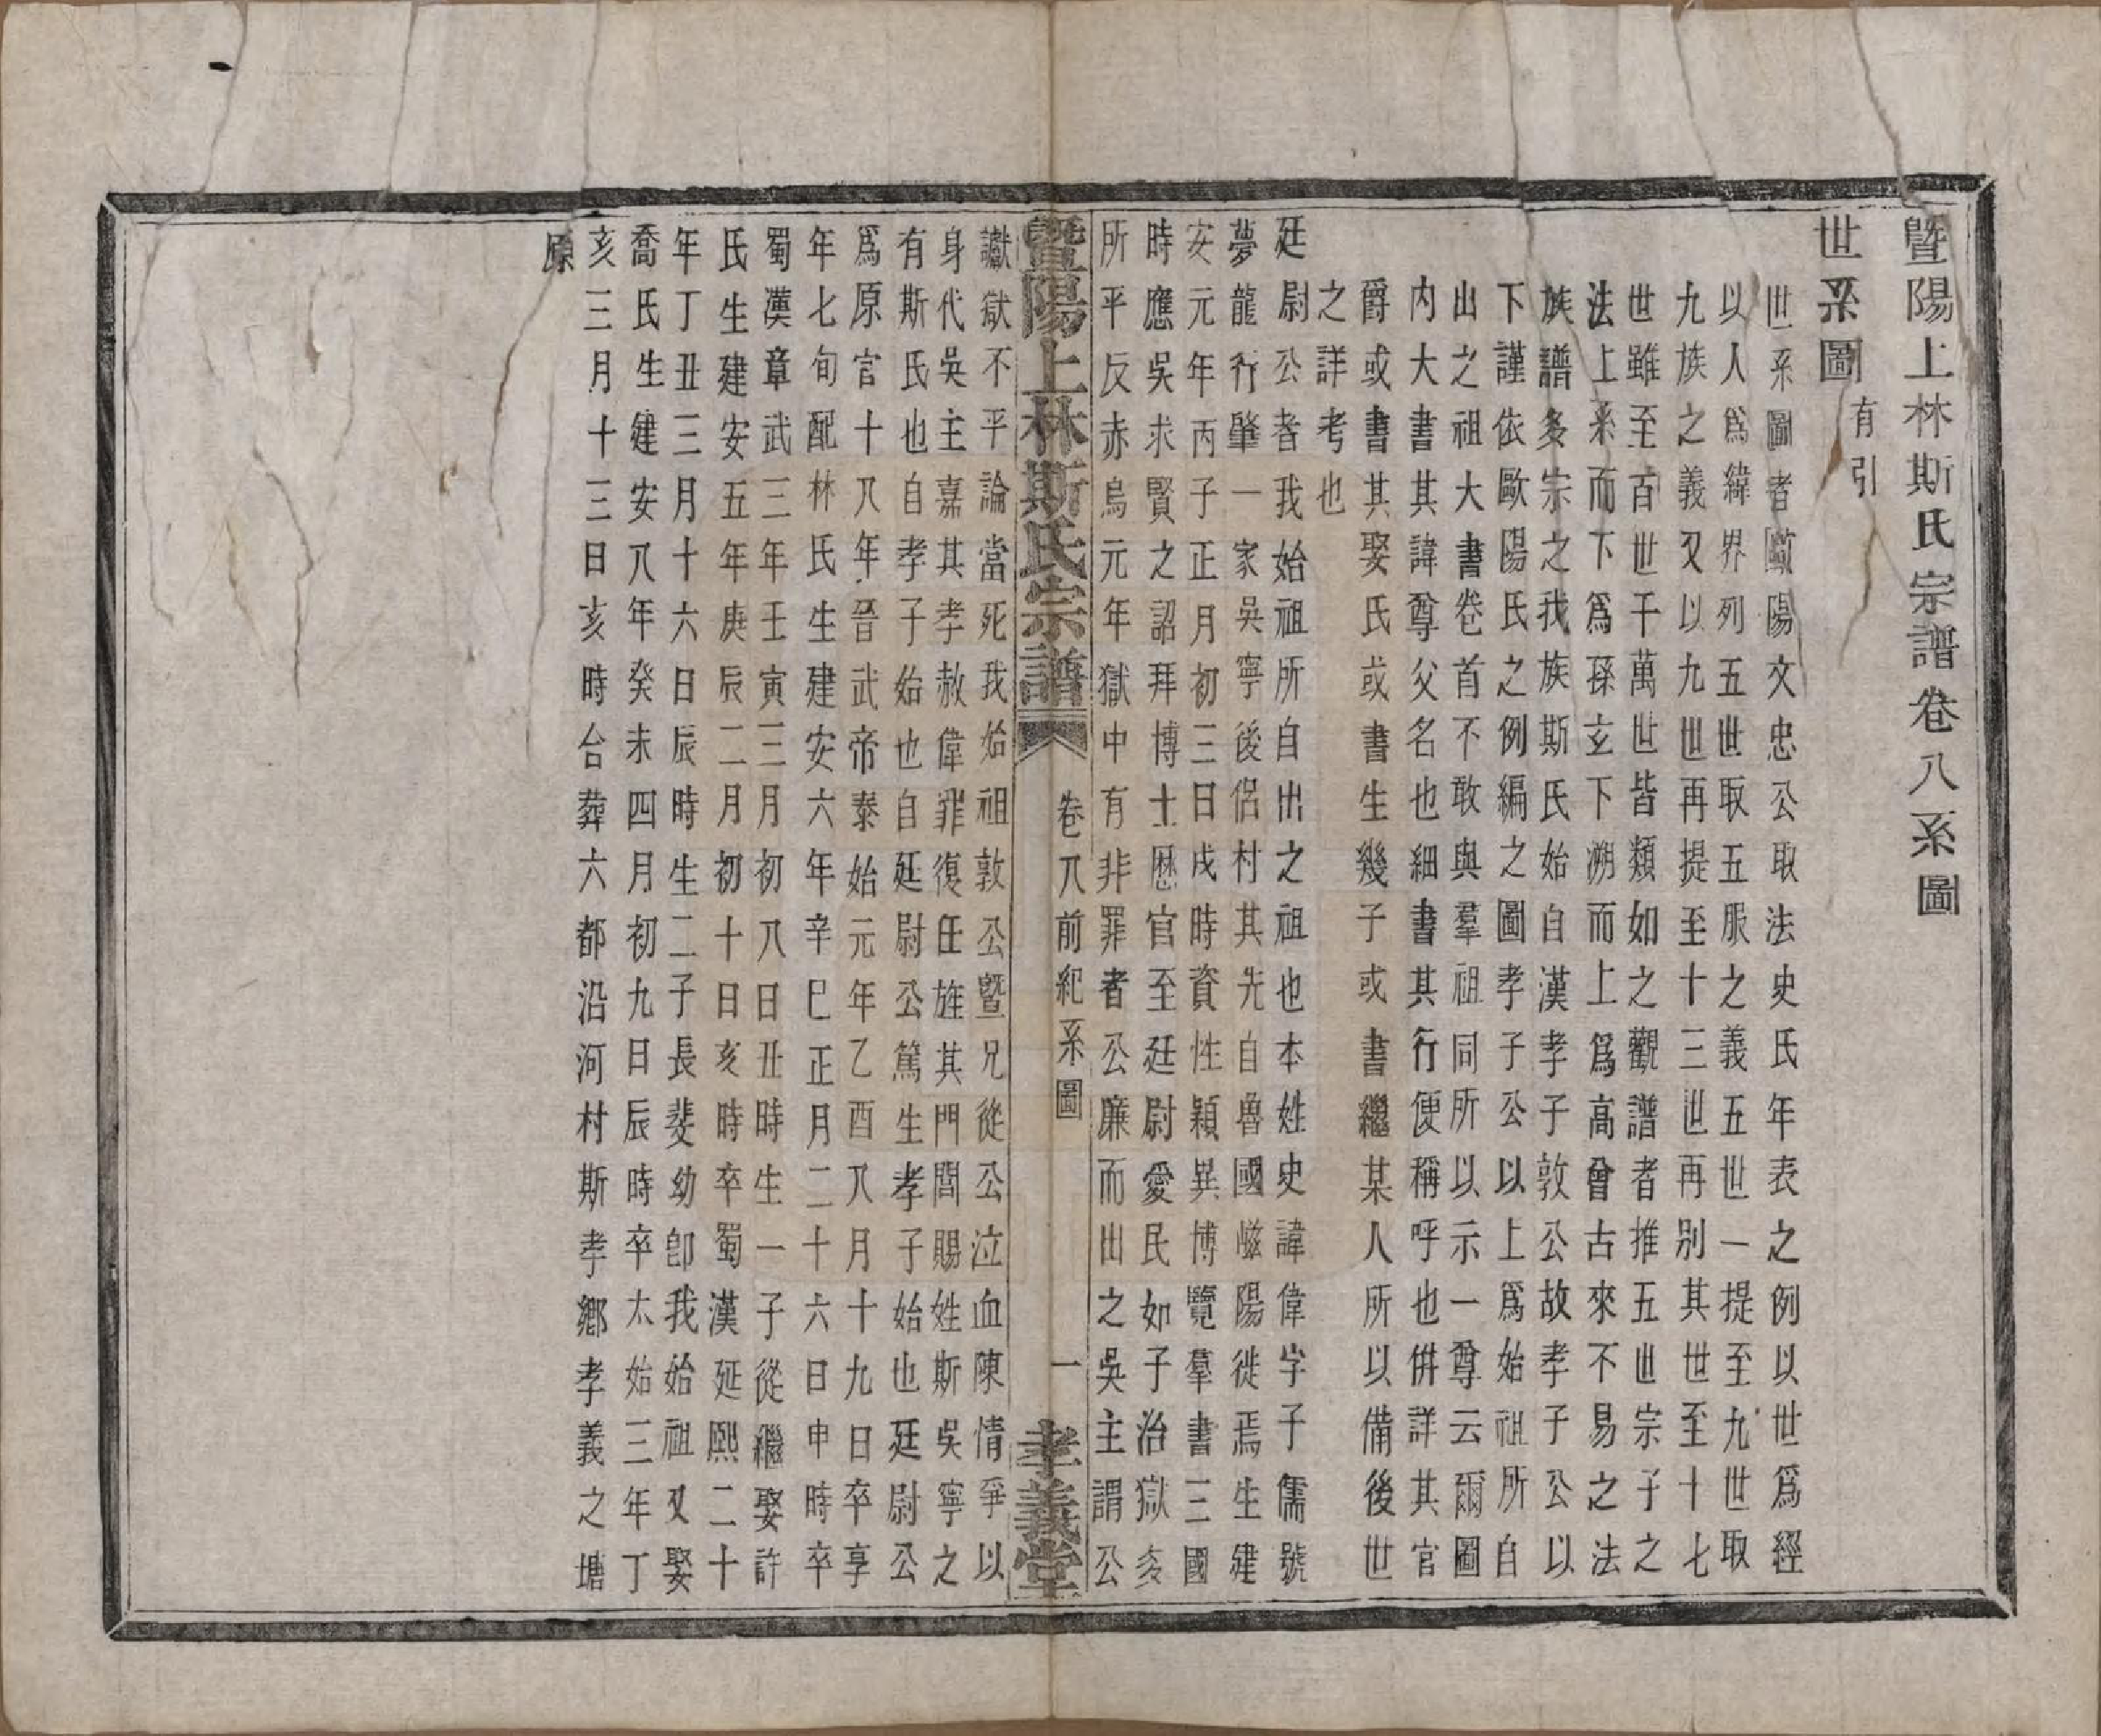 暨陽上林斯氏宗譜卷八系圖
世系圖 有引
世系圖者歐陽文忠公取法史氏年表之例以世爲經
以人爲緯界列五世取五服之義五世一提至九世取
九族之義又以九世再提至十三世再別其世至十七
世雖至百世千萬世皆類如之觀譜者推五世宗子之
法上系而下爲孫玄下溯而上爲高曾古來不易之法
族譜多宗之我族斯氏始自漢孝子敦公故孝子公以
下謹依歐陽氏之例編之圖孝子公以上爲始祖所自
出之祖大書卷首不敢與羣祖同所以示一尊云爾圖
内大書其諱尊父名也細書其行便稱呼也併詳其官
爵或書其娶氏或書生幾子或書繼某人所以備後世
之詳考也
廷尉公者我始祖所自出之祖也本姓史諱偉字子儒號
夢龍行肇一家吳寧後侶村其先自魯國嶧陽徙焉生建
安元年丙子正月初三日戌時資性穎異博覽羣書三國
時應吳求賢之詔拜博士歷官至廷尉愛民如子治獄多
所平反赤烏元年獄中有非罪者公廉而出之吳主謂公
讞獄不平論當死我始祖敦公暨兄從公泣血陳情爭以
身代吳主嘉其孝赦偉罪復任旌其門閭賜姓斯吳寧之
有斯氏也自孝子始也自廷尉公篤生孝子始也廷尉公
爲原官十八年晉武帝泰始元年乙酉八月十九日卒享
年七旬配林氏生建安六年辛巳正月二十六日申時卒
蜀漢章武三年壬寅三月初八日丑時生一子從繼娶許
氏生建安五年庚辰二月初十日亥時卒蜀漢延熙二十
年丁丑三月十六日辰時生二子長斐幼卽我始祖又娶
喬氏生建安八年癸未四月初九日辰時卒太始三年丁
亥三月十三日亥時合葬六都沿河村斯孝鄉孝義之塘
原
暨陽上林斯氏宗譜 卷八前紀系圖 一 孝義堂